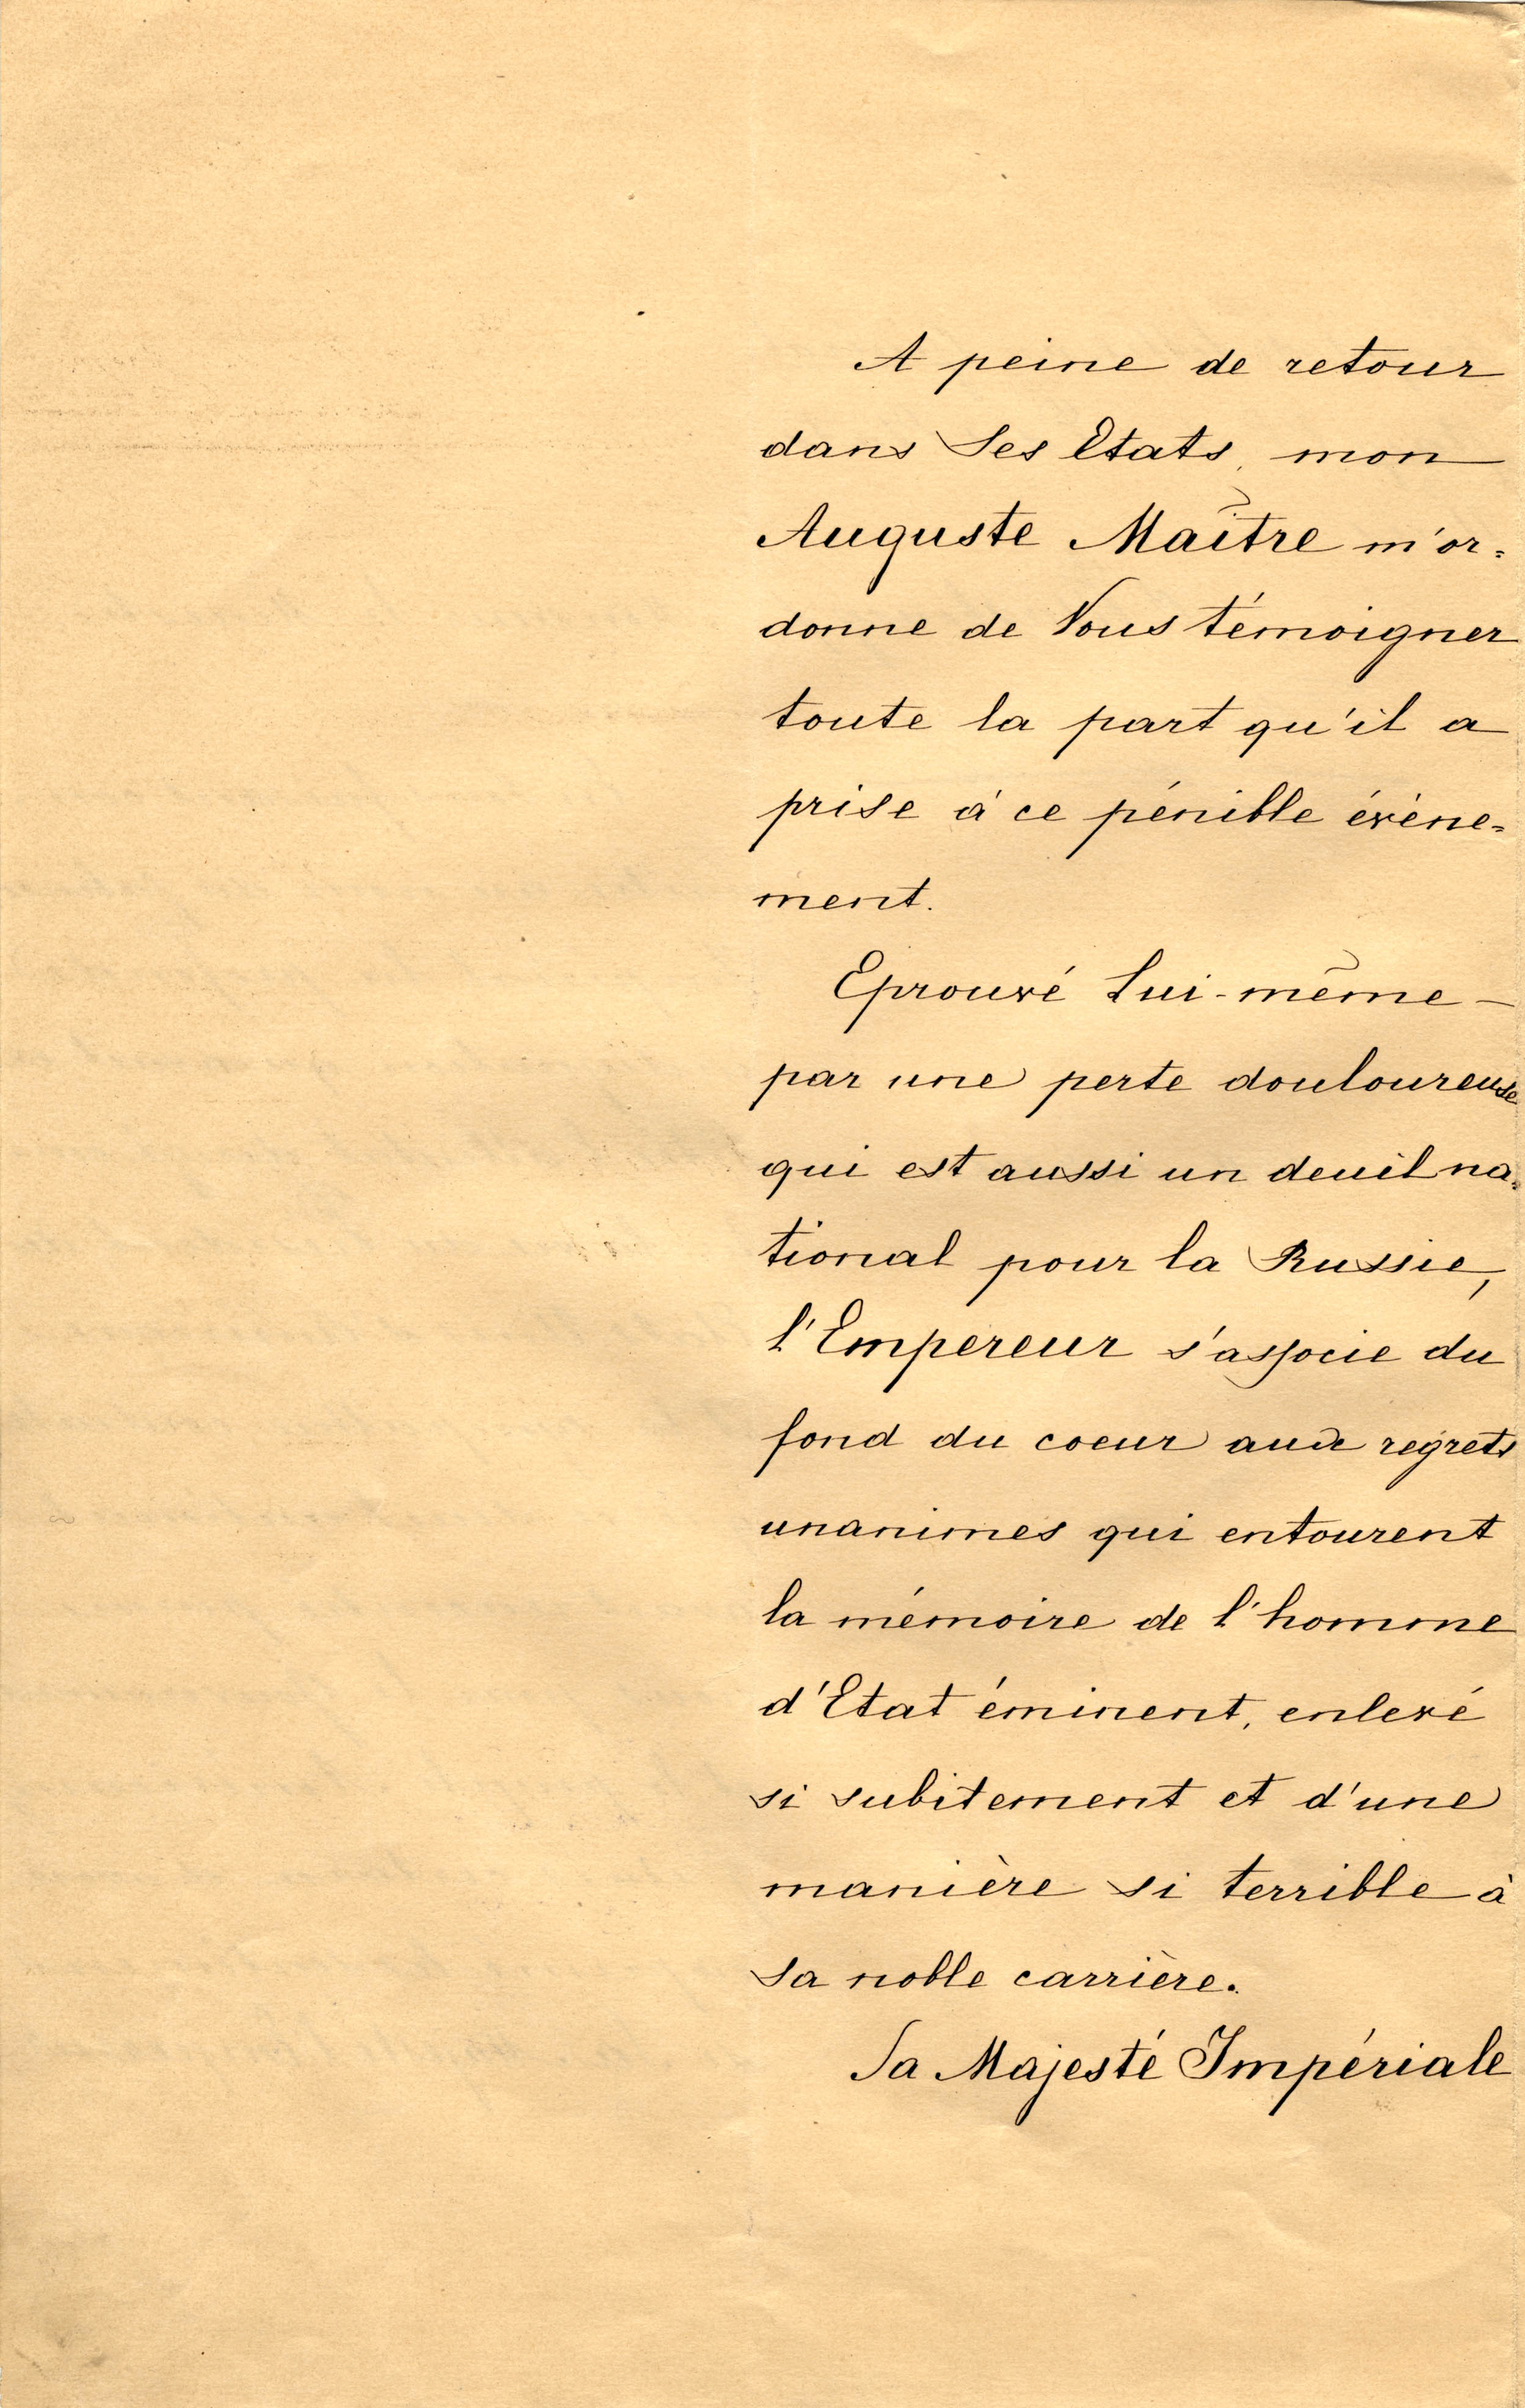 A peine de retour
dans Ses Etats, mon
Auguste Maître m'or=
donne de Vous témoigner
toute la part qu'il a
prise à ce pénible évène=
ment.
Eprouvé Lui-même
par une perte douloureuse
qui est aussi un deuil na=
tional pour la Russie,
l'Empereur s'associe du
fond du coeur aux regrets
unanimes qui entourent
la mémoire de l'homme
d'Etat éminent, enlevé
si subitement et d'une
manière si terrible à
sa noble carrière.
Sa Majesté Impériale